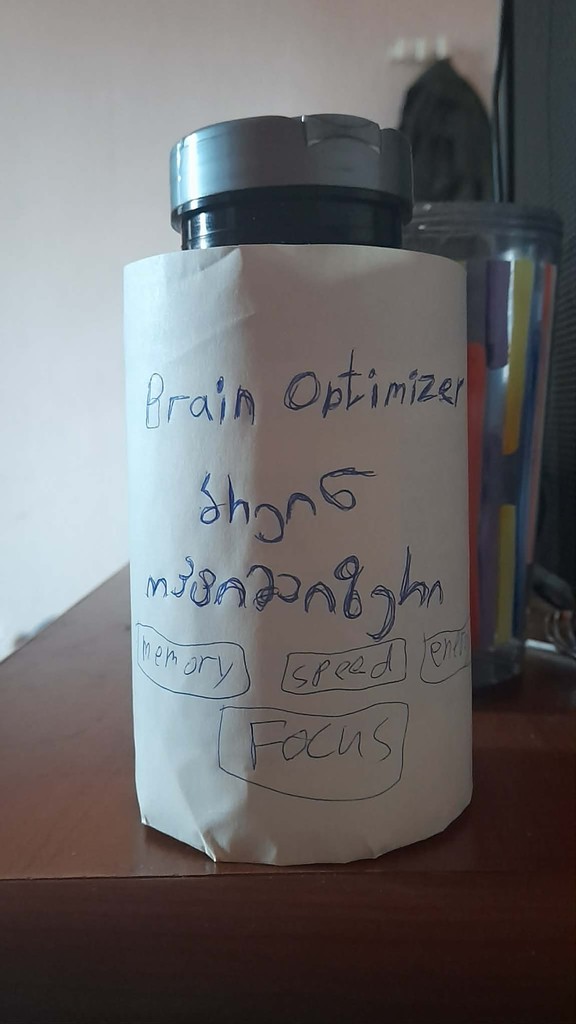 Brain Optimizer
ბრეინ
ოპტიმაიზერი
memory speed ene
Focus